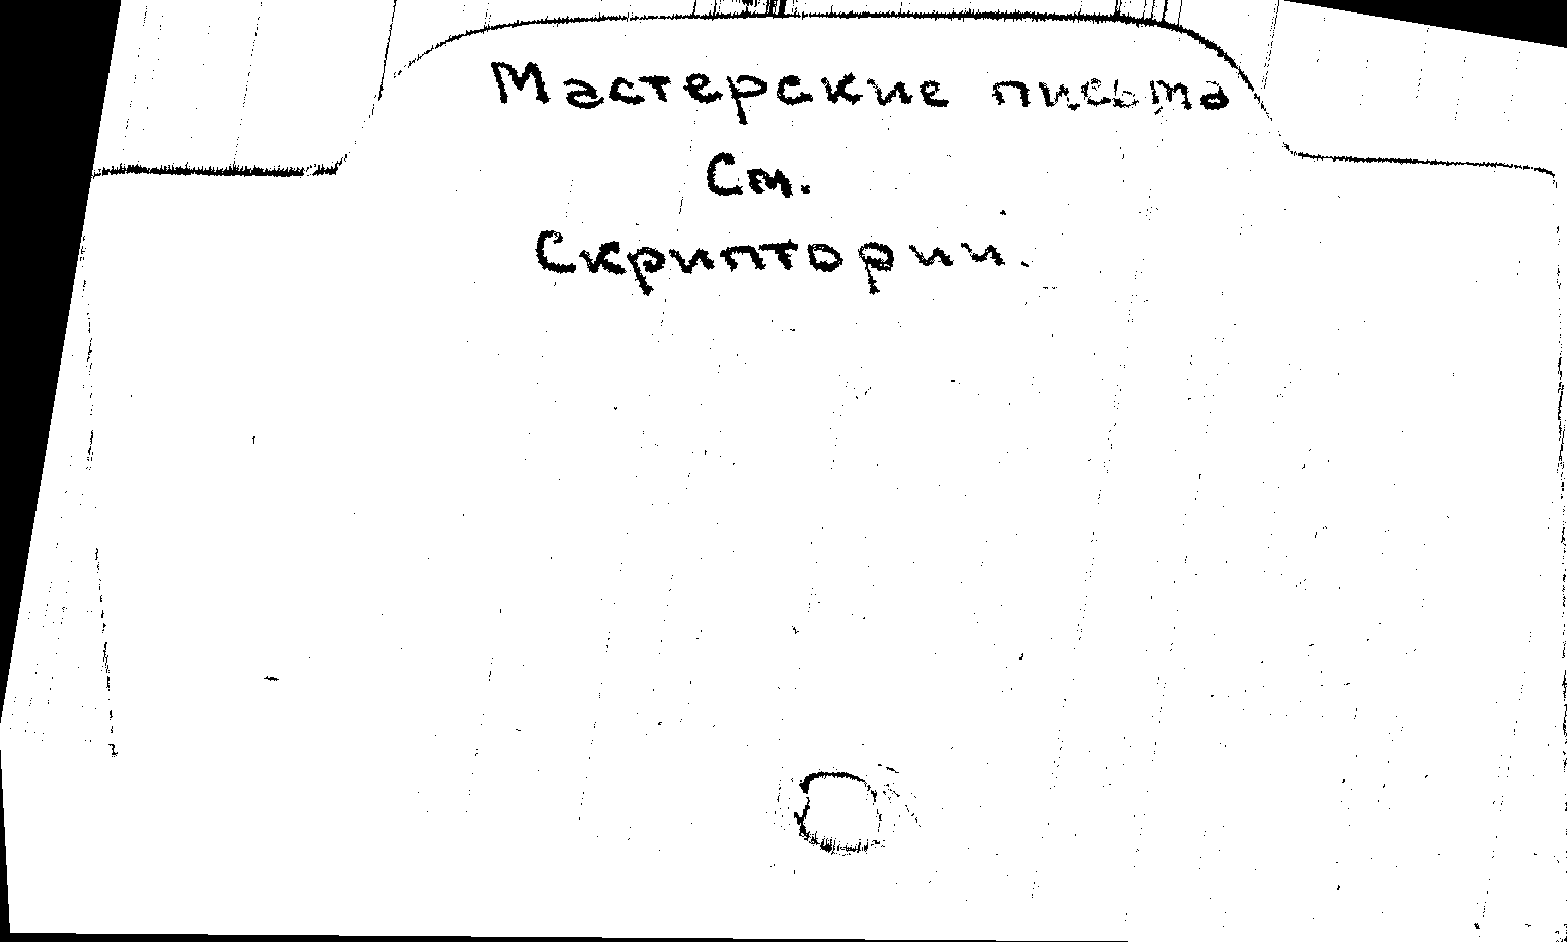 Мастерские письма
См.
Скриптории.